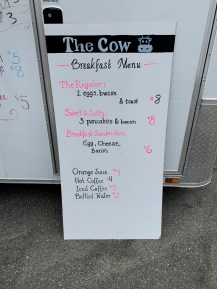 The Cow
Breakfast Menu
The Regular:
2 eggs, bacon
& toast $8
Sweet & Salty:
3 pancakes & bacon $8
Breakfast Sandwich:
Egg, Cheese,
Bacon $6
Orange Juice $4
Hot Coffee $4
Iced Coffee $5
Bottled Water $2
$5